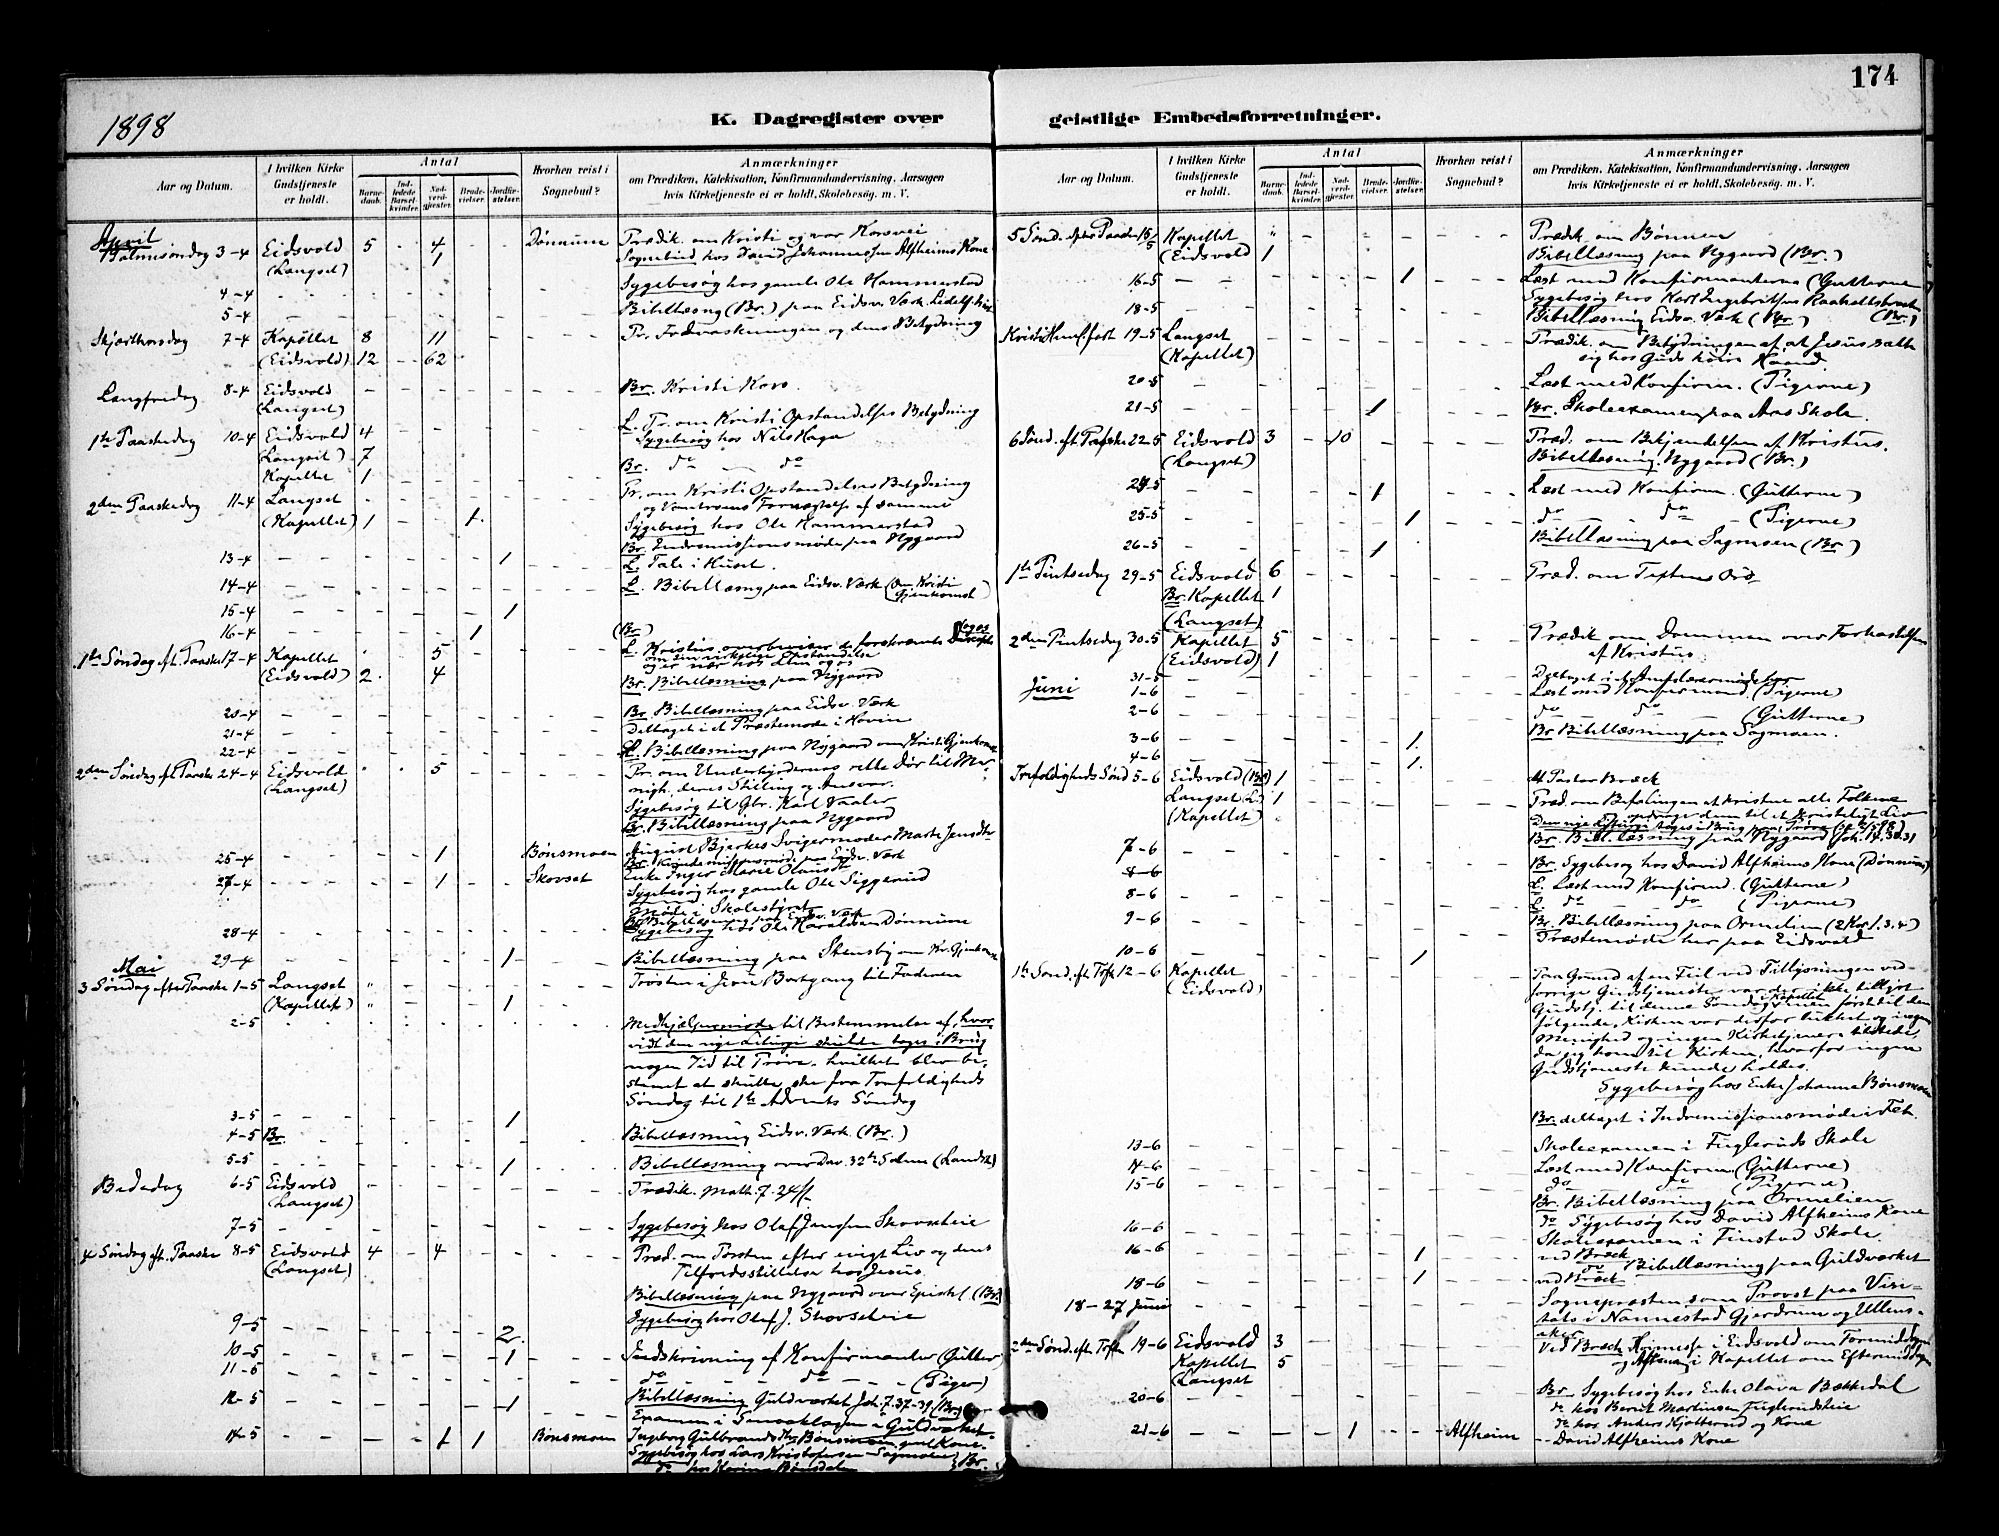 174
1898
K. Dagregister over geistlige Embedsforretninger.
Aar og Datum.
I hvilken Kirke Gudstjeneste er holdt.
Antal
Barnedaab.
Indledede Barselkvinder.
Nadverdgjester.
Brudevielser.
Jordfæstelser.
Hvorhen reist i Sognebud?
Anmærkninger
om Prædiken, Katekisation, Konfirmandundervisning, Aarsagen
hvis Kirketjeneste ei er holdt, Skolebesøg, m. V.
April
Palmesøndag 3-4 Eidsvold 5 - 4 Dønnum Prædik. om Kristi og vor Korsvei
(Langset) 1 Sognebud hos David Johannessen Alfheims Kone
4-4 Sygebesøg hos gamle Ole Hammerstad
5-4 Bibellæsng (Br.) paa Eidsv. Værk
Skjærthorsdag 7-4 Kapellet 8 11 Pr. Fodvaskningen og dens Betydning
(Eidsvold) 12 62
Langfredag 8-4 Eidsvold Br. Kristi Kors.
(Langset)
1ste Paaskedag 10-4 Eidsvold 4 L. Pr. om Kristi Opstandelses Betydning
(Langset) 7 Sygebesøg hos Nils Haga
Kapellet 1 Br. do do
2den Paaskedag 11-4 Langset Pr. om Kristi Opstandelses Betydning
(Kapellet) 1 1 og Vantroens Fornægtelse af samme
Sygebesøg hos Ole Hammerstad
Br. Indremissionsmøde paa Nygaard
13-4 1 L. Tale i Huset.
14-4 L. Bibellæsng paa Eidsv. Værk (Om Kristi Gjenkomst)
15-4 1
16-4 1 (Br.)
1ste Søndag eft. Paaske 17-4 Kapellet 5 L. Kristus overbeviser de forskræmte Disciple
om sin virkelige Opstandelse
(Eidsvold) 2 4 Br. Bibellæsning paa Nygaard
20-4 Br. Bibellæsning paa Eidsv. Værk
21-4 Deltaget i et Præstemøde i Hovin
22-4 Bibellæsning paa Nygaard om Kristi Gjenkomst
2den Søndag eft. Paaske 24-4 Eidsvold 5 Pr. om Underhyrdernes rette Dør til Me-
(Langset) nigh. deres Stilling og Ansvar.
Sygebesøg til Gbr. Karl Vaaler
Br. Bibellæsning paa Nygaard
25-4 1 Bønsmoen August Bjerkes Svigermoder Marte Jensdtr
27-4 1 Skovset Enke Inger Marie Olausdtr
Sygebesøg hos gamle Ole Siggerud
Møde i Skolestyret
28-4 Br. Bibellæsning paa Eidsv. Værk
Sygebesøg hos Ole Haraldsen Dønnum
29-4 1 Bibellæsning paa Stensby om Kr. Gjenkomst
Mai
3 Søndag efter Paaske 1-5 Langset Trøsten i Jesu Bortgang til Faderen
(Kapellet) 1
2-5 Medhjælpermøde til Bestemmelse af, hvor-
vidt den nye Liturgi skulde tages i Brug
nogen Tid til Prøve, hvilket blev be-
stemt at skulle ske fra Trefoldigheds
Søndag til 1ste Advents Søndag
3-5 1
4-5 Br. Bibellæsning Eidsv. Værk (Br.)
5-5 1 Bibellæsning over Dav. 32te Salme
Bededag 6-5 Eidsvold Prædik. Math. 7. 24ff
(Langset)
7-5 Sygebesøg hos Olaf Janssen Skovseteie
4 Søndag eft. Paaske 8-5 Eidsvold 4 - 4 Præd. om Tørsten efter evigt Liv og dens
(Langset) Tilfredsstillelse hos Jesus.
Bibellæsning paa Nygaard over Epistel (Br.)
9-5 2 Sygebesøg hos Olaf J. Skovseteie
10-5 1 Indskrivning af Konfirmanter (Gutter)
11-5 do do (Piger)
12-5 1 Bibellæsning Guldværket Joh. 7.37-39 (Br.)
Examen i Smaaklassen i Guldværket
14-5 1 1 Bønsmoen Ingeborg Gulbrandsdtr Bønsmoen
Sygebesøg hos Lars Kristofersen
5 Sønd. efter Paaske 15/5 Kapellet Prædk. om Bønnen
(Eidsvold 1 Bibellæsning paa Nygaard (Br.)
16-5 1 Læst med Konfirmanterne (Gutterne
Sygebesøg hos Karl Ingebritsens (Br.)
18-5 Bibellæsning Eidsv. Værk (Br.)
Kristi Himf.fest 19-5 Langset Prædik. om Betydningen af at Jesus satte
(Kapellet) sig hos Guds høire Haand.
20-5 Læst med Konfirm. (Pigerne)
21-5 1 Br. Skoleexamen paa Aas Skole.
6 Sønd. eft. Paaske 22-5 Eidsvold 3 - 10 Præd. om Bekjendelsen af Kristus.
(Langset) Bibellæsning. Nygaard (Br.)
24-5 1 Læst med Konfirm. (Gutterne)
25-5 1 do do (Pigerne)
26-5 1 Bibellæsning paa Sagmoen (Br.)
1ste Pintsedag 29-5 Eidsvold 6 Præd. om Textens Ord
Br. Kapellet 1
(Langset)
2den Pintsedag 30-5 Kapellet 5 Prædik om Dommen over Forkastelsen
(Eidsvold) 1 af Kristus
31-5 Deltaget i et
Juni 1-6 Læst med Konfirmand. (Pigerne)
2-6 do do (Gutterne)
3-6 1. Br Bibellæsning paa Sagmoen.
4-6 1.
Trefoldigheds Sønd 5-6 Eidsvold (Br) 1 Pastor Bræck
Langset (L.) 1 Præd. om Befalingen at kristne alle Folkene
(Kapellet)
Br. Bibellæsning paa Nygaard
7-6 Br. Sygebesøg hos David Alfheims Kone (Dønnum)
8-6 L. Læst med Konfirmd. (Gutterne)
8-6 L. do do (Pigerne)
9-6 Br. Bibellæsning paa Ormelien (2 Kor. 1. 3.4)
10-6 1 Præstemøde her paa Eidsvold
1ste Sønd. eft Tref 12-6 Kapellet Paa Grund af en Feil ved Tillysningen ved
(Eidsvold) forrige Gudstjeneste var der ikke tillyst
Gudstj. til denne Søndag i Kapellet men først til den
følgende. Kirken var derfor lukket og ingen
Menighed og ingen Kirketjenere tilstede,
da jeg kom til Kirken, hvorfor ingen
Gudstjeneste kunde holdes.
Sygebesøg hos Enke Johanne Bønsmoen
Br. deltaget i Indremissionsmøde i Fet.
13-6 Skoleexamen i Fuglerud Skole
14-6 Læst med Konfirm. (Gutterne)
15-6 do do (Pigerne)
Br. Bibellæsning paa Ormelien
16-6 do Sygebesøg hos David Alfheims Kone
Skoleexamen i Finstad Skole
16-6 1 ved Bræck
do Bibellæsning paa Guldværket
18-6 1 ved Bræck
18-27 Juni Sognepræsten som Provst paa Visi-
tats i Nannestad Gjerdrum og Ullens-
aker
2den Sønd. eft Tref 19-6 Eidsvold 3 Ved Bræck i Eidsvold om Formiddagen
Kapellet 5 og i Kapellet om Eftermiddagen
(Langset
20-6 Br Sygebesøg hos Enke Olava Bækkedal
do hos Bernt Martinsen Fuglerudseie
do hos Anders og Kone
21-6 1 Alfheim - David Alfheims Kone